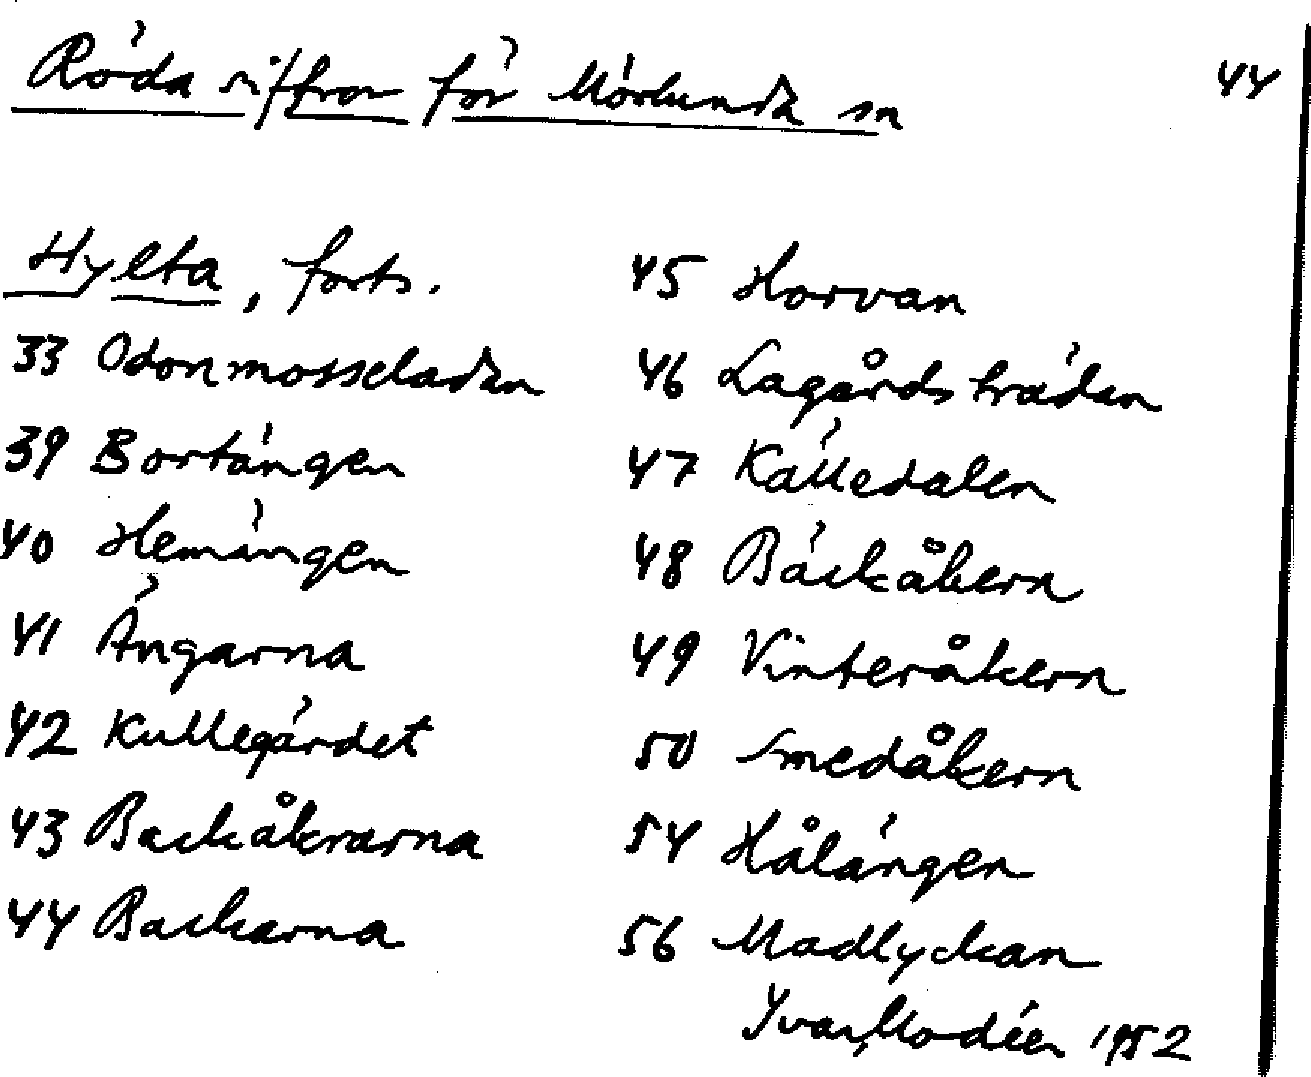 Röda siffror för Mörlunda sn
44
Hylta, forts.
33 Odonmosseladan
39 Bortängen
40 Hemängen
41 Ängarna
42 Kullegärdet
43 Backåkrarna
44 Backarna
45 Horvan
46 Lagårdsträdan
47 Källedalen
48 Bäckåkern
49 Vinteråkern
50 Smedåkern
54 Hålängen
56 Madlyckan
Yvar Modéer 1952